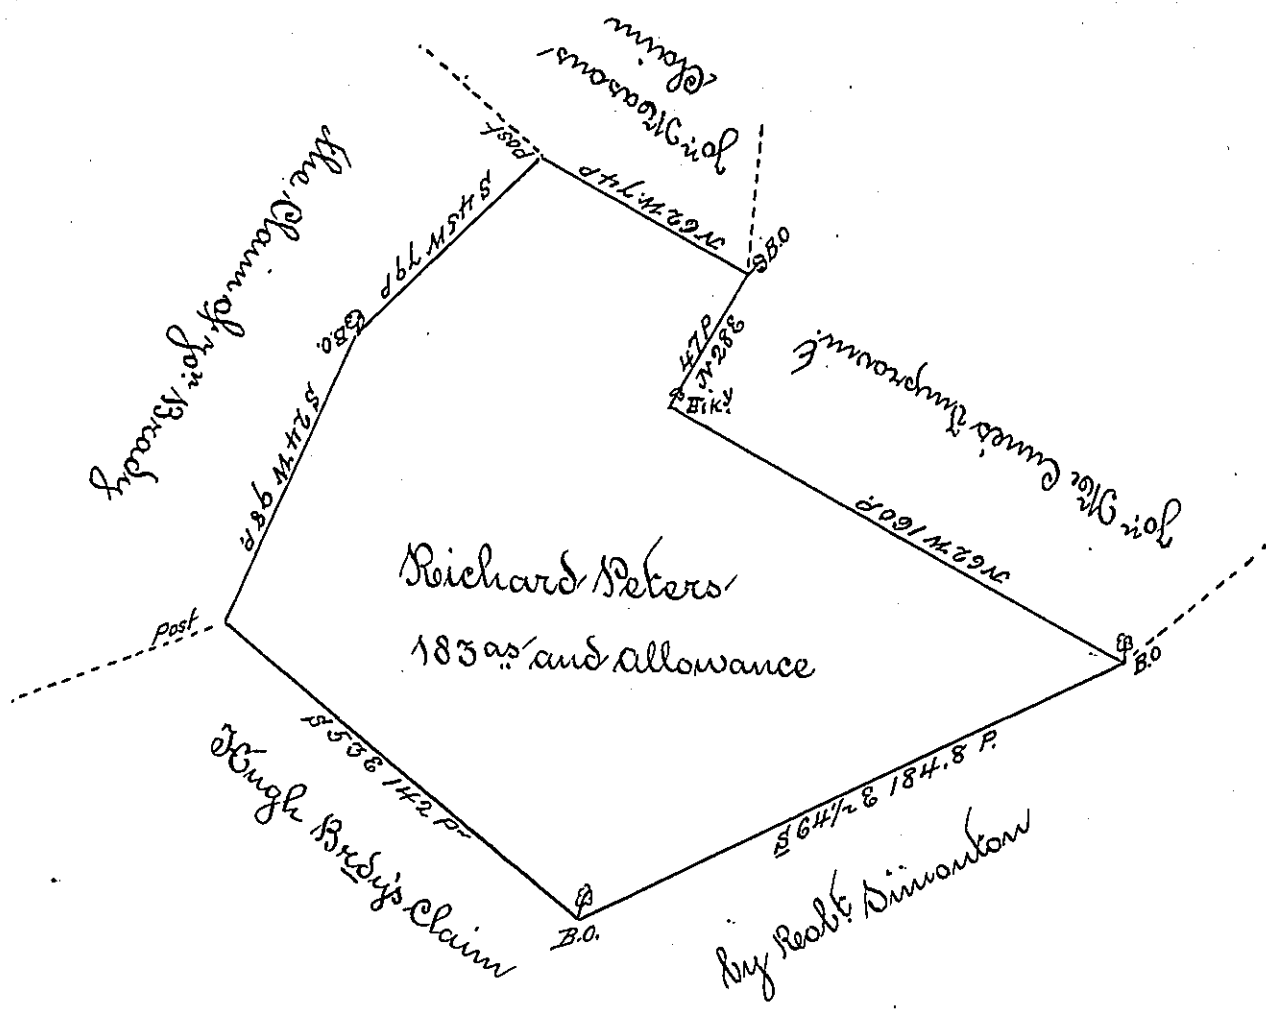 Jos. Masons
Claim
Post
N 62 W. 74 P
B.O
S 45 W 79 P
The Claim of Jos. Brady
B.O.
47 P
N 28 E
Hiky.
Jos. Mc Cunes Improvm.t
N 62 W 160 P.
S 24 W 98 P.
Richard Peters
183 as. and allowance
Post
B.O
S 53 E 142 Pr
Hugh Brady's Claim
S 64 1/2 E 184.8 P.
B.O.
by Robt. Simonton